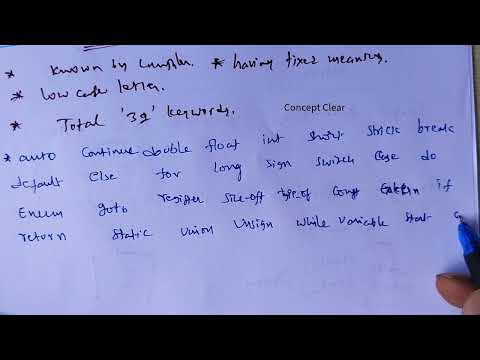 * Known by compiler. * having fixed meaning.
* low case letter.
* Total '32' keywords.
Concept Clear
* auto continue double float int short strick break
default else for long sign switch case do
Enum goto register size-off type of const extern if
return static union Unsign while variable start